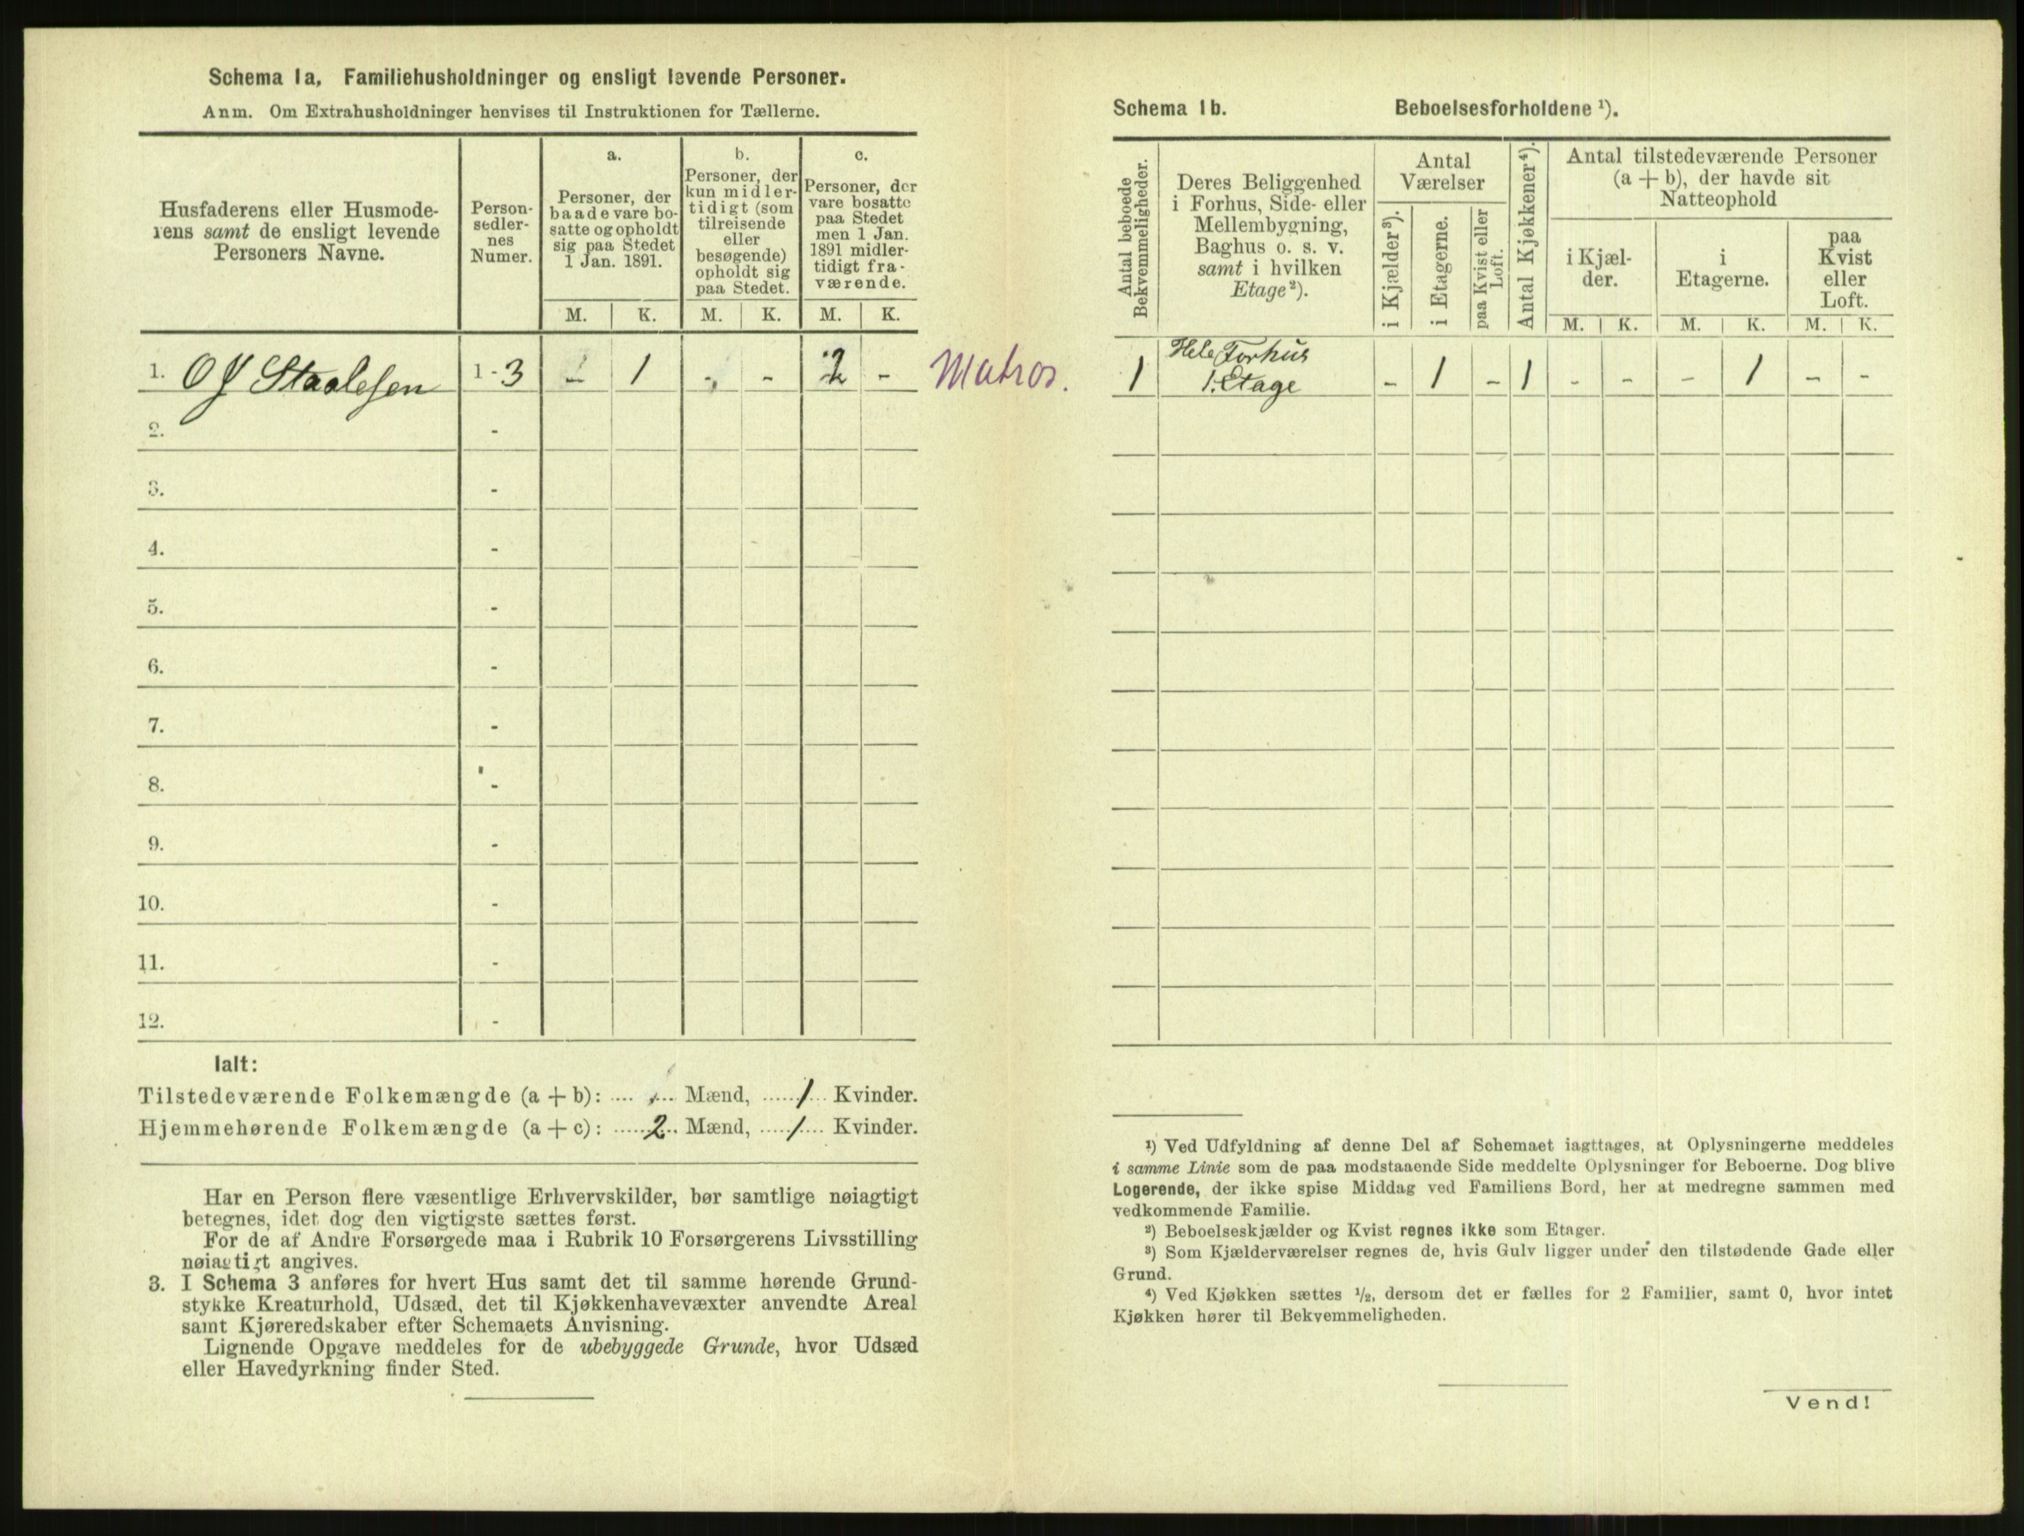 Schema 1a, Familiehusholdninger og ensligt levende Personer.
Anm. Om Extrahusholdninger henvises til Instruktionen for Tællerne.
Husfaderens eller Husmode-
rens samt de ensligt levende
Personers Navne.
Person-
sedler-
nes
Numer.
a.
Personer, der
baade vare bo-
satte og opholdt
sig paa Stedet
1 Jan. 1891.
b.
Personer, der
kun midler-
tidigt (som
tilreisende
eller
besøgende)
opholdt sig
paa Stedet.
c.
Personer, der
vare bosatte
paa Stedet
men 1 Jan.
1891 midler-
tidigt fra-
værende.
M. K. M. K. M. K.
1. O J Staalesen 1 - 3 - 1 - - 2 - Matros.
2. -
3. -
4. -
5. -
6. -
7. -
8. -
9. -
10. -
11. -
12. -
Ialt:
Tilstedeværende Folkemængde (a + b): .... Mænd, ...... 1 ... Kvinder.
Hjemmehørende Folkemængde (a + c): ...... 2 .. Mænd, ..... 1 .... Kvinder.
Har en Person flere væsentlige Erhvervskilder, bør samtlige nøiagtigt
betegnes, idet dog den vigtigste sættes først.
For de af Andre Forsørgede maa i Rubrik 10 Forsørgerens Livsstilling
nøiagtigt angives.
3. I Schema 3 anføres for hvert Hus samt det til samme hørende Grund-
stykke Kreaturhold, Udsæd, det til Kjøkkenhavevæxter anvendte Areal
samt Kjøreredskaber efter Schemaets Anvisning.
Lignende Opgave meddeles for de ubebyggede Grunde, hvor Udsæd
eller Havedyrkning finder Sted.
Schema 1b. Beboelsesforholdene ¹).
Antal beboede
Bekvemmeligheder.
Deres Beliggenhed
i Forhus, Side- eller
Mellembygning,
Baghus o. s. v.
samt i hvilken
Etage²).
Antal
Værelser
i Kjælder³).
i Etagerne.
paa Kvist eller
Loft.
Antal Kjøkkener⁴).
Antal tilstedeværende Personer
(a + b), der havde sit
Natteophold
i Kjæl-
der.
i
Etagerne.
paa
Kvist
eller
Loft.
M. K. M. K. M. K.
Hele Forhus
1 1. Etage - 1 - 1 - - - 1 - -
¹) Ved Udfyldning af denne Del af Schemaet iagttages, at Oplysningerne meddeles
i samme Linie som de paa modstaaende Side meddelte Oplysninger for Beboerne. Dog blive
Logerende, der ikke spise Middag ved Familiens Bord, her at medregne sammen med
vedkommende Familie.
²) Beboelseskjælder og Kvist regnes ikke som Etager.
³) Som Kjælderværelser regnes de, hvis Gulv ligger under den tilstødende Gade eller
Grund.
⁴) Ved Kjøkken sættes ½, dersom det er fælles for 2 Familier, samt 0, hvor intet
Kjøkken hører til Bekvemmeligheden.
Vend!